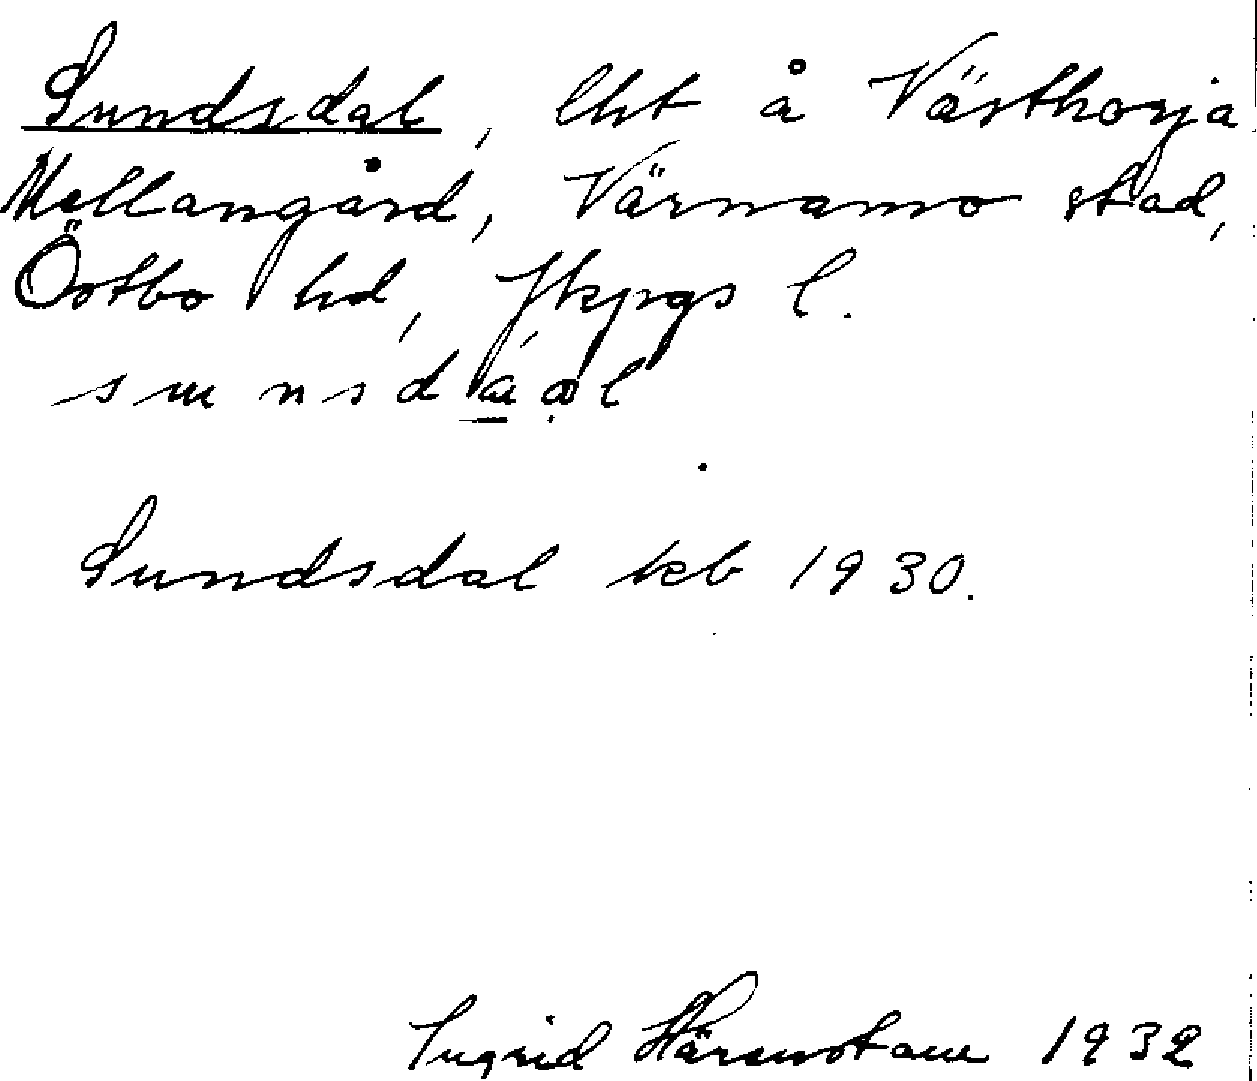 Sundsdal, lht å Västhorja
Mellangård, Värnamo stad,
Östbo hd, Jkpgs l.
Sundsdal kb 1930.
Ingrid 1932